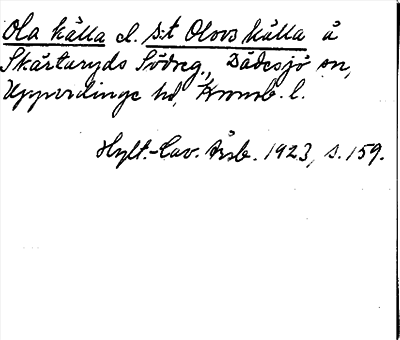 Ola källa el. S:t Olovs källa å
Skårtaryds Södreg., Dädesjö sn,
Uppvidinge hd, Kronob. l.
Hylt.-Cav. Årsb. 1923, s. 159.